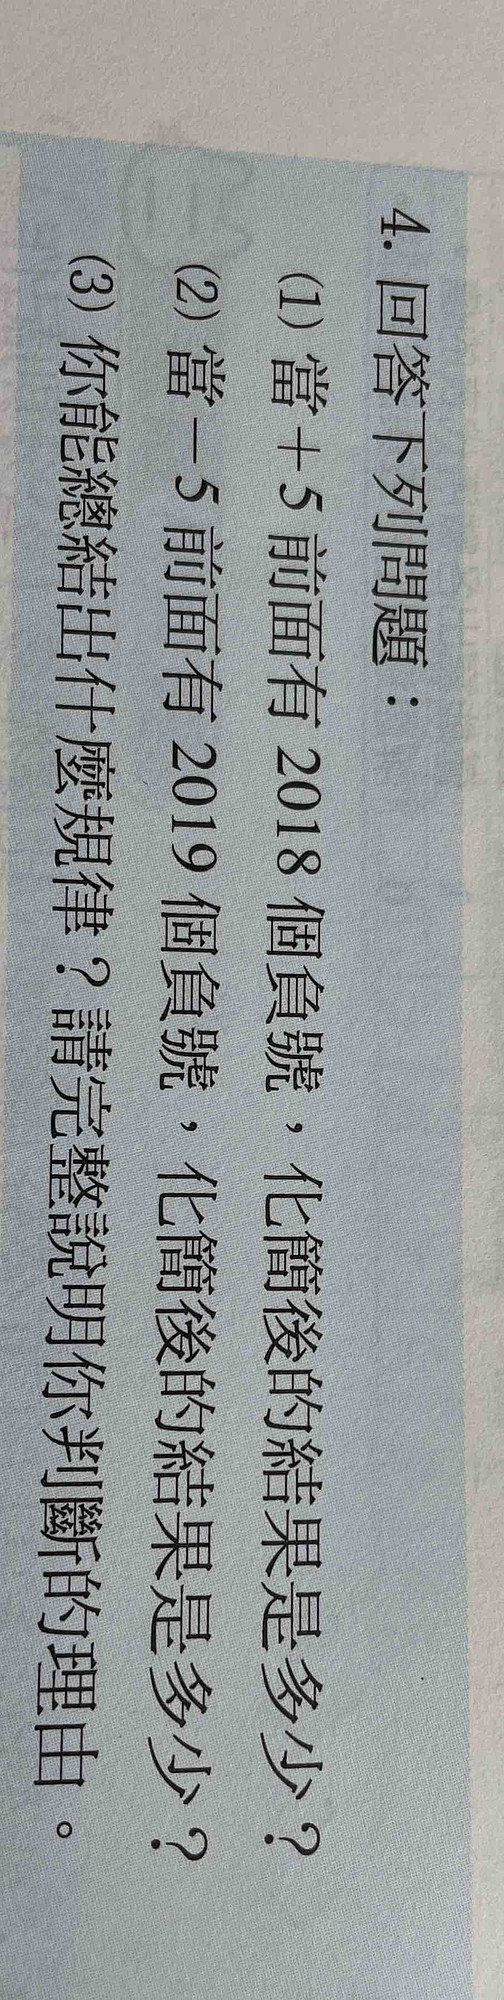 4. 回答下列問題：
(1) 當＋5 前面有 2018 個負號，化簡後的結果是多少？
(2) 當－5 前面有 2019 個負號，化簡後的結果是多少？
(3) 你能總結出什麼規律？請完整說明你判斷的理由。